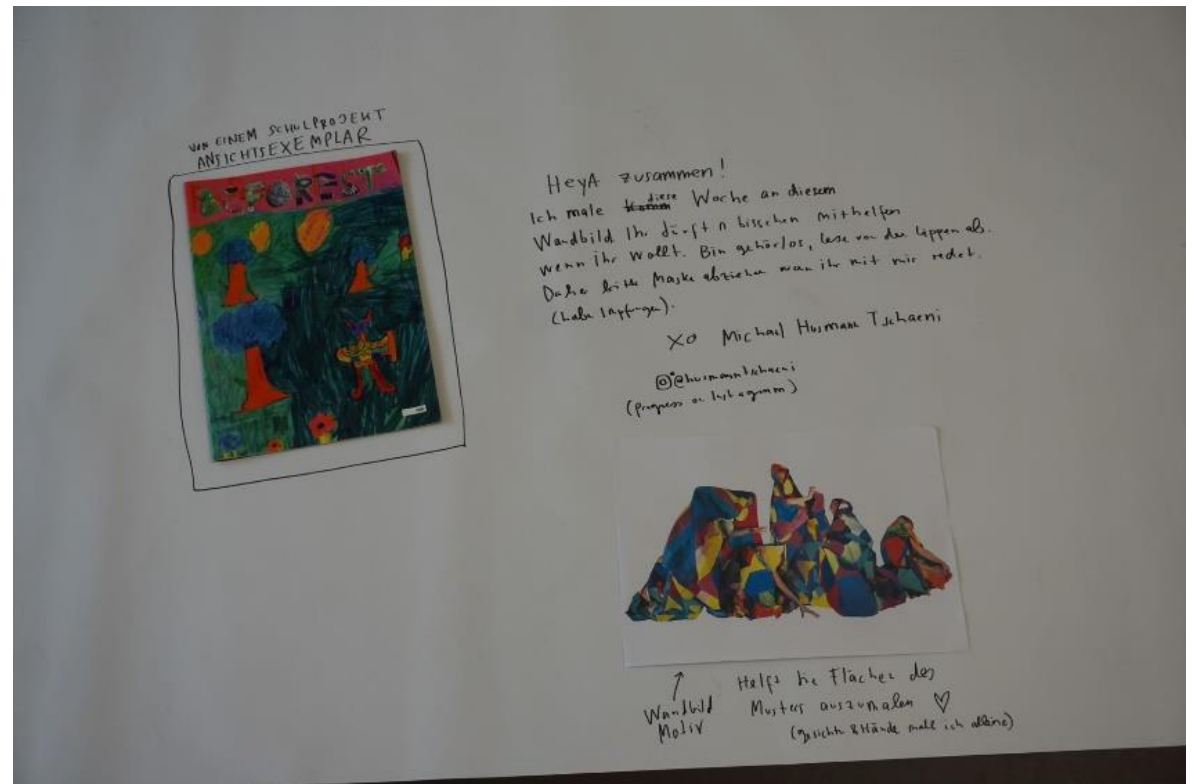 VON EINEM SCHULPROJEKT
ANSICHTSEXEMPLAR
BEFOREST
HeyA zusammen!
Ich male diese Woche an diesem
Wandbild Ihr dürft n bisschen mithelfen
wenn ihr wollt. Bin gehörlos, lese von den Lippen ab.
Daher bitte Maske abziehen wenn ihr mit mir redet.
(habe Impfungen).
XO Michael Husmann Tschaeni
@husmanntschaeni
(progress on Instagramm)
Wandbild
Motiv
Helft die Flächen des
Musters auszumalen ♡
(gesichter & Hände male ich alleine)